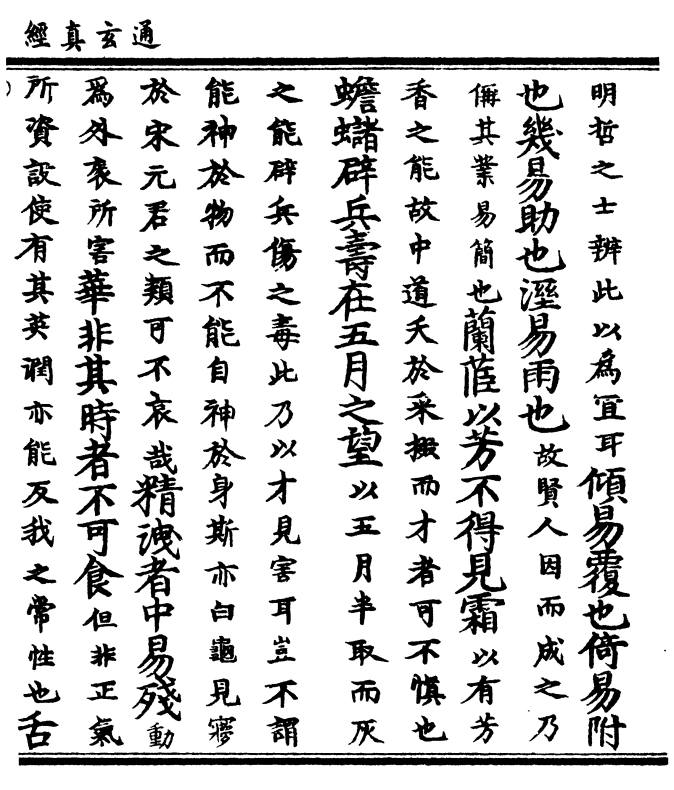 通玄真經
明哲之士辨此以為冝耳傾易覆也倚易附
也幾易助也溼易雨也故賢人因而成之乃
偹其業易簡也蘭茝以芳不得見霜以有芳
香之能故中道夭於采掇而才者可不慎也
蟾蠩辟兵壽在五月之望以五月半取而灰
之能辟兵傷之毒此乃以才見害耳豈不謂
能神於物而不能自神於身斯亦白龜見夢
於宋元君之類可不哀哉精洩者中易殘動
為外衮所害華非其時者不可食但非正氣
所資設使有其英潤亦能反我之常性也舌